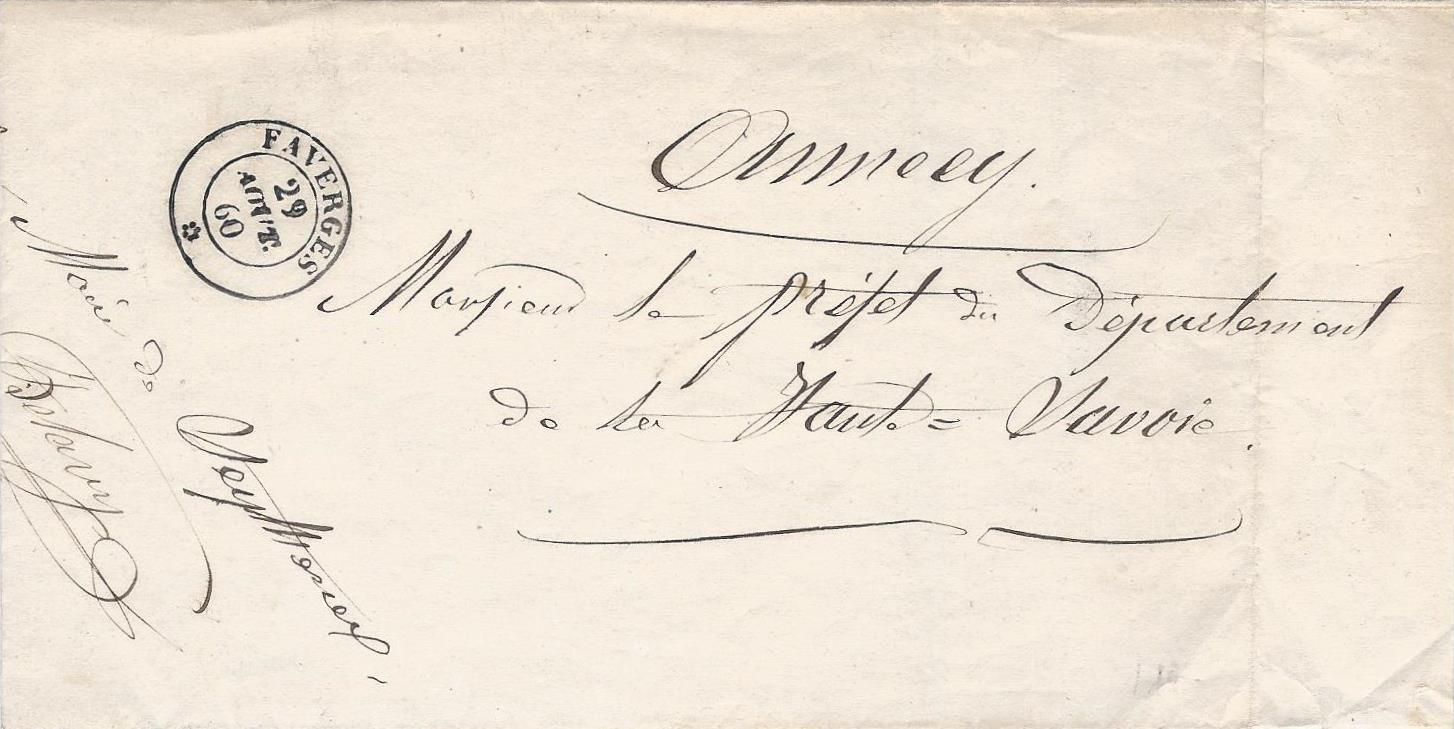 FAVERGES
29
AOUT.
60
Annecy.
Monsieur le préfet du Département
de la Haute=Savoie.
Maire de